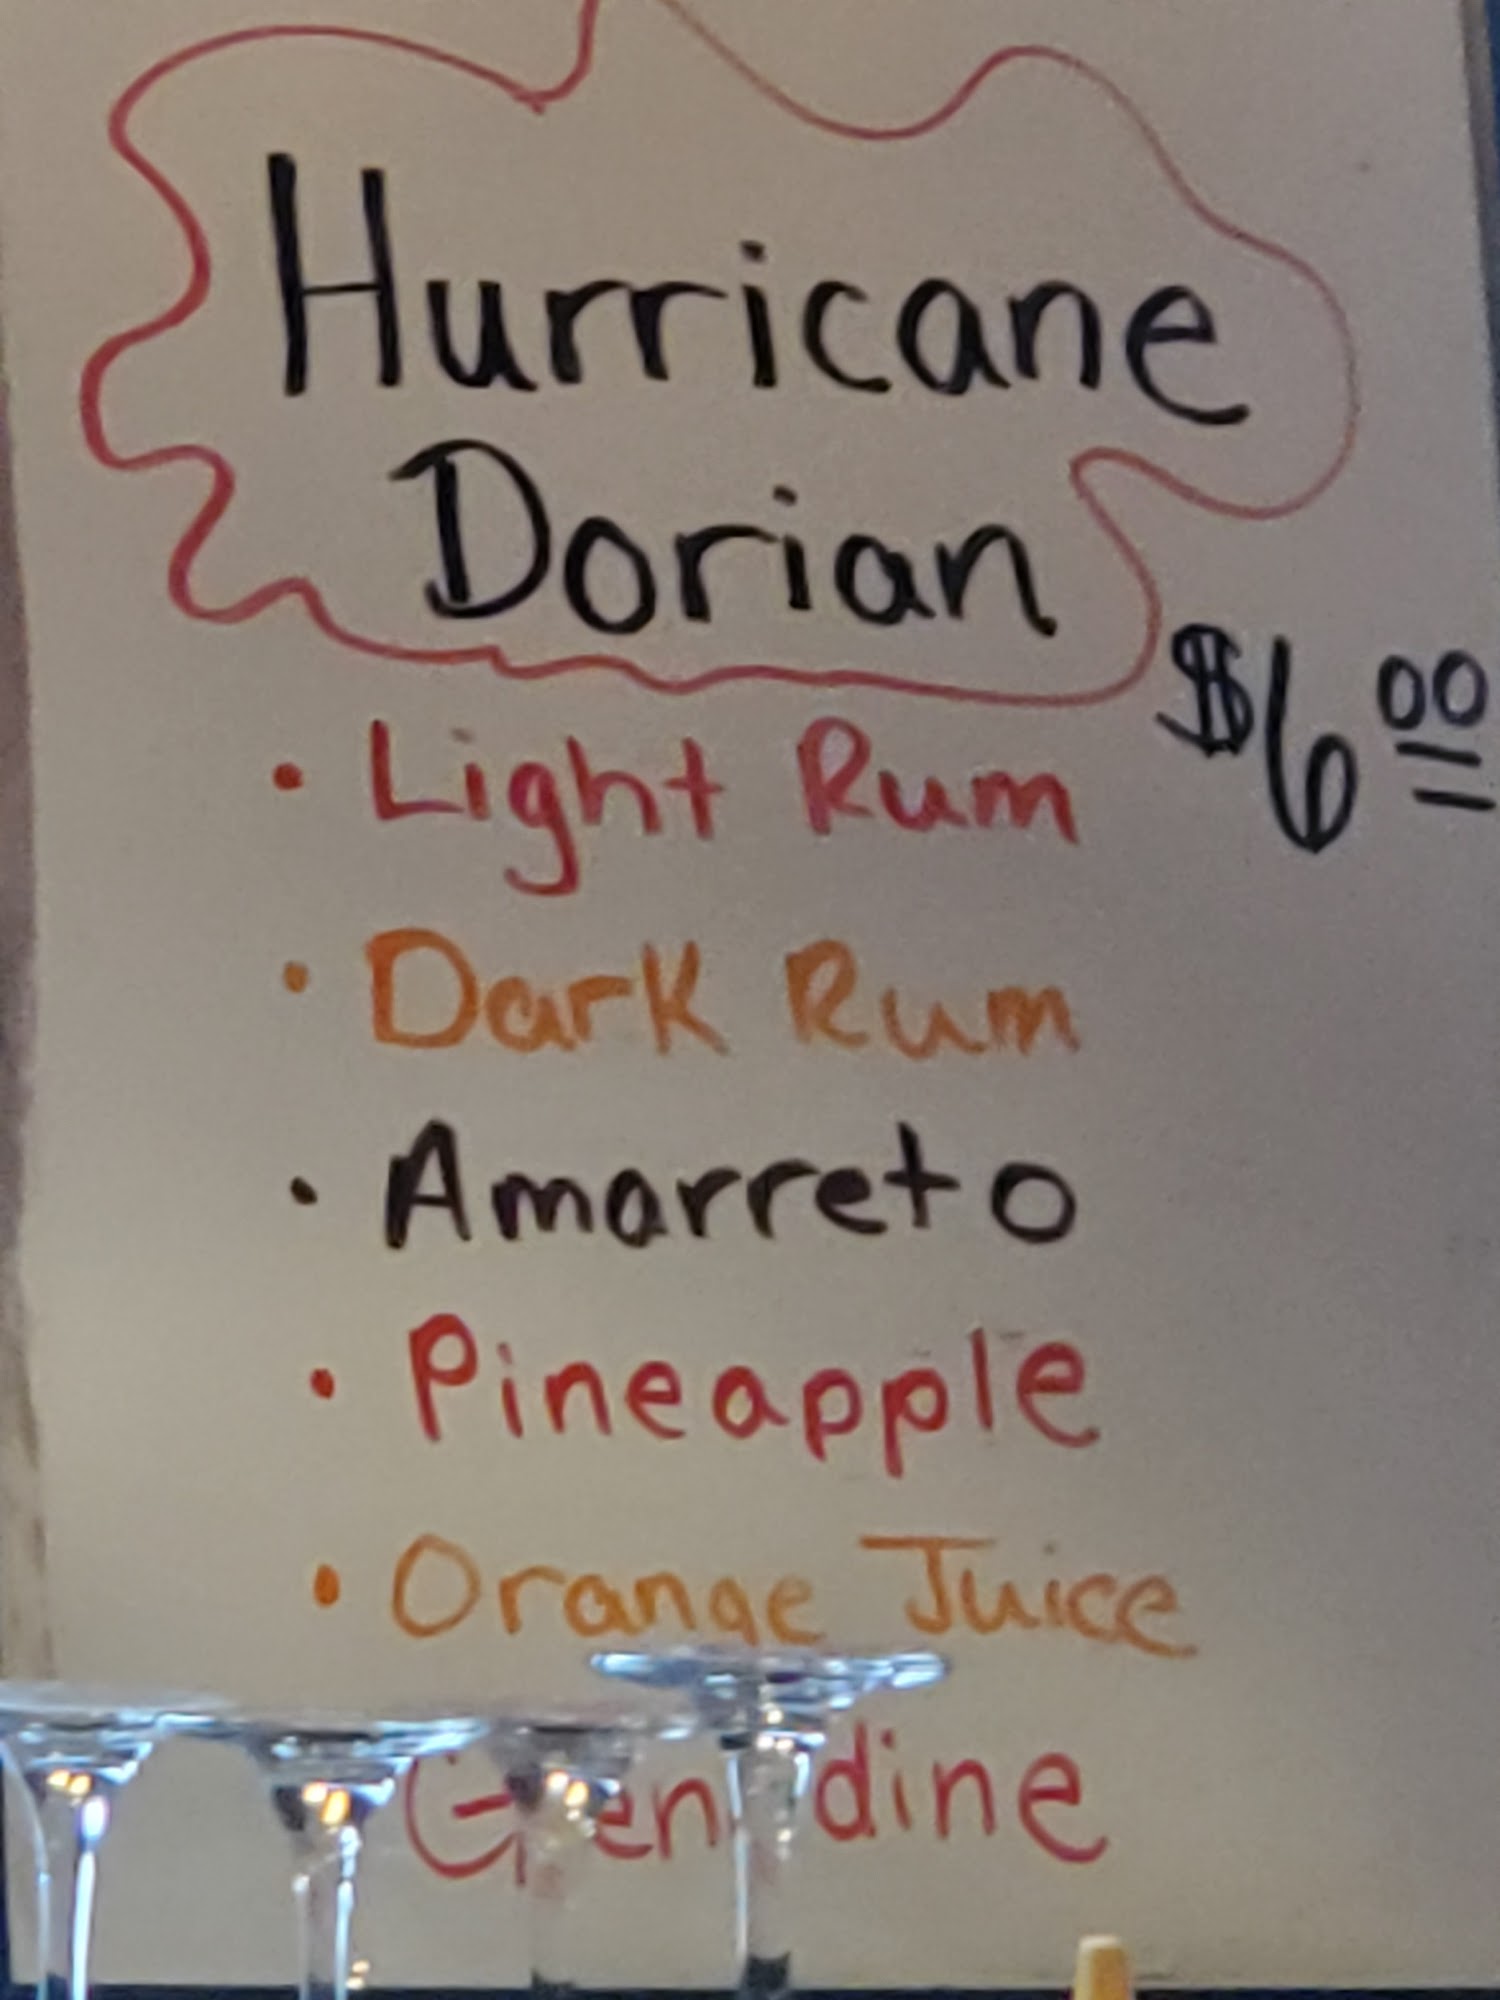 Hurricane
Dorian
$6.00
• Light Rum
• Dark Rum
• Amarreto
• Pineapple
• Orange Juice